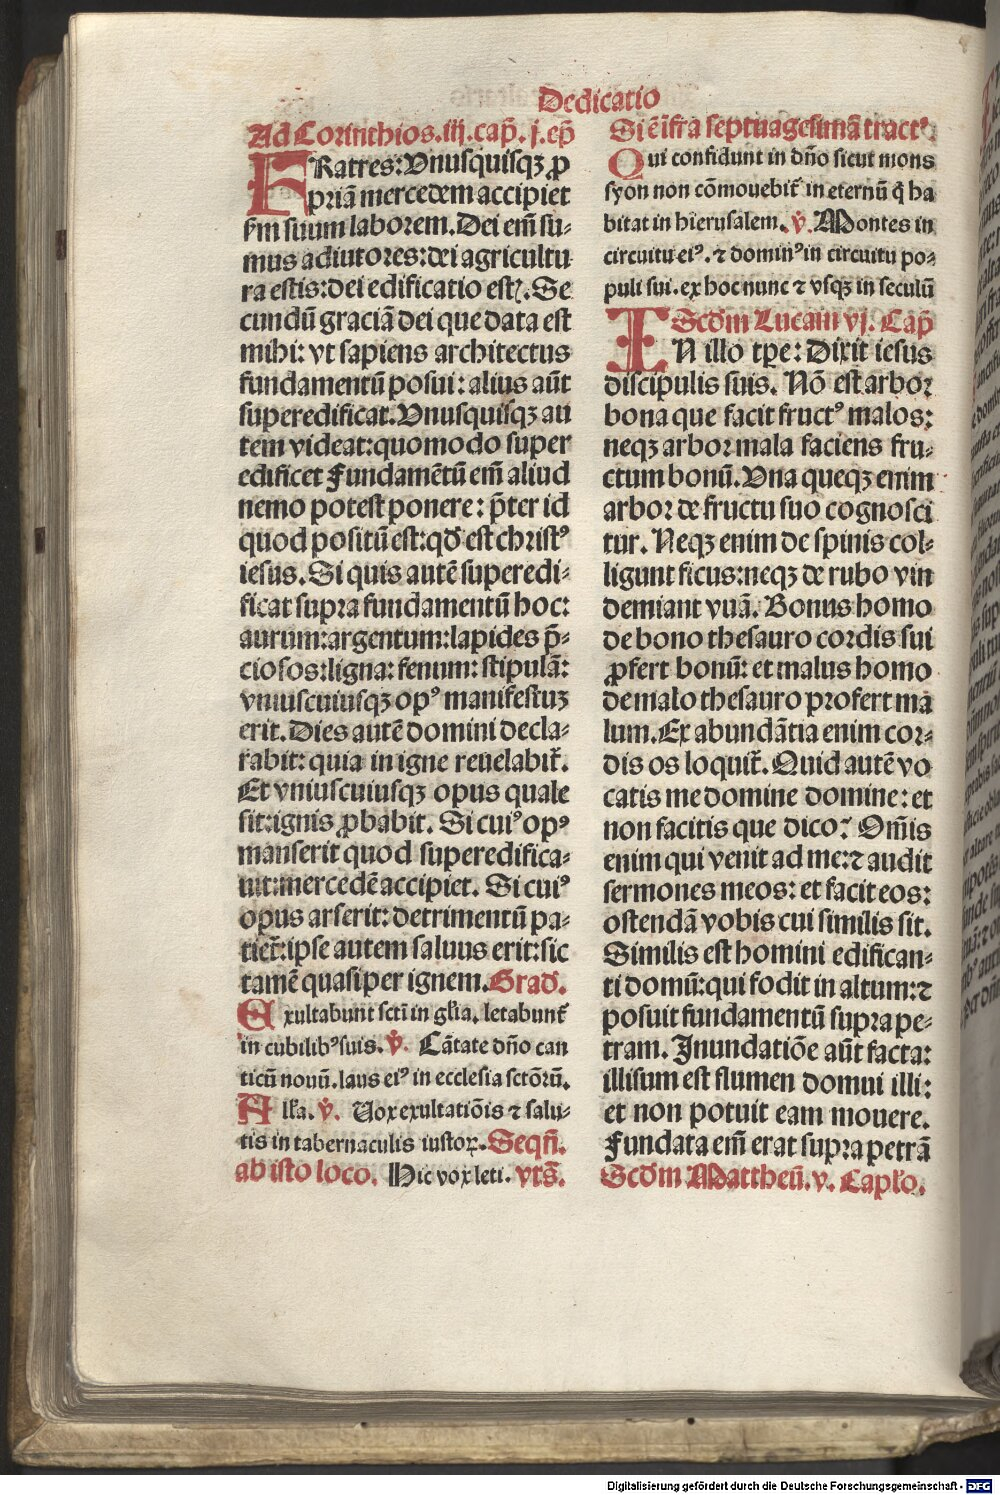 Dedicatio
Ad Corinthios.iij.cap̄.j.ep̄
FRatres:Vnusquisqꝫ ꝓ
priā mercedem accipiet
ẜm suum laborem.Dei em̄ su⸗
mus adiutores:dei agricultu
ra estis:dei edificatio estꝭ.Se
cundū graciā dei que data est
mihi: vt sapiens architectus
fundamentū posui: alius aūt
superedificat.Vnusquisqꝫ au
tem videat:quomodo super
edificet Fundamētū em̄ aliud
nemo potest ponere: p̄ter id
quod positū est:qd̄ est christꝰ
iesus. Si quis autē superedi⸗
ficat supra fundamentū hoc:
aurum:argentum:lapides p̄⸗
ciosos:ligna: fenum: stipulā:
vniuscuiusqꝫ opꝰ manifestuꝫ
erit.Dies autē domini decla⸗
rabit: quia in igne reuelabit᷑.
Et vniuscuiusqꝫ opus quale
sit:ignis ꝓbabit. Si cuiꝰ opꝰ
manserit quod superedifica⸗
uit:mercedē accipiet. Si cuiꝰ
opus arserit: detrimentū pa⸗
tiet᷑:ipse autem saluus erit:sic
tamē quasi per ignem.Grad̄.
Exultabunt scti̅ in gl̄ia. letabunt᷑
in cubilibꝰ suis. ℣. Cātate dn̄o can
ticū nouū.laus eiꝰ in ecclesia sctōrū.
All̄a. ℣. Uox exultatiōis ⁊ salu⸗
tis in tabernaculis iustoꝝ.Seqn̄.
ab isto loco. Hic vox leti. vrs̄.
Si ē īfra septuagesimā tractꝰ
Qui confidunt in dn̄o sicut mons
syon non cōmouebit᷑ in eternū q̄ ha
bitat in hierusalem. ℣. Montes in
circuitu eiꝰ. ⁊ dominꝰ in circuitu po⸗
puli sui. ex hoc nunc ⁊ vsqꝫ in seculū
Scd̄m Lucam vj. Cap̄
IN illo tp̄e: Dixit iesus
discipulis suis. Nō est arbor
bona que facit fructꝰ malos:
neqꝫ arbor mala faciens fru⸗
ctum bonū.Vna queqꝫ enim
arbor de fructu suo cognosci
tur. Neqꝫ enim de spinis col⸗
ligunt ficus:neqꝫ de rubo vin
demiant vuā. Bonus homo
de bono thesauro cordis sui
ꝓfert bonū: et malus homo
de malo thesauro profert ma
lum.Ex abundātia enim cor⸗
dis os loquit᷑. Quid autē vo
catis me domine domine: et
non facitis que dico? Om̄is
enim qui venit ad me:⁊ audit
sermones meos: et facit eos:
ostendā vobis cui similis sit.
Similis est homini edifican⸗
ti domū:qui fodit in altum:⁊
posuit fundamentū supra pe⸗
tram. Inundatiōe aūt facta:
illisum est flumen domui illi:
et non potuit eam mouere.
Fundata em̄ erat supra petrā
Scd̄m Mattheū.v. Capl̄o.
Digitalisierung gefördert durch die Deutsche Forschungsgemeinschaft - DFG